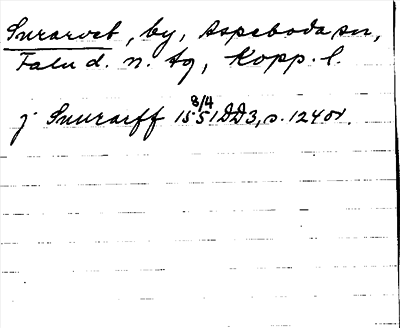 Snrarvet, by, Aspeboda sn,
Falu d. n. tg, Kopp. l.
j Snurarff 15 8/4 51 DD3, s. 124 or.